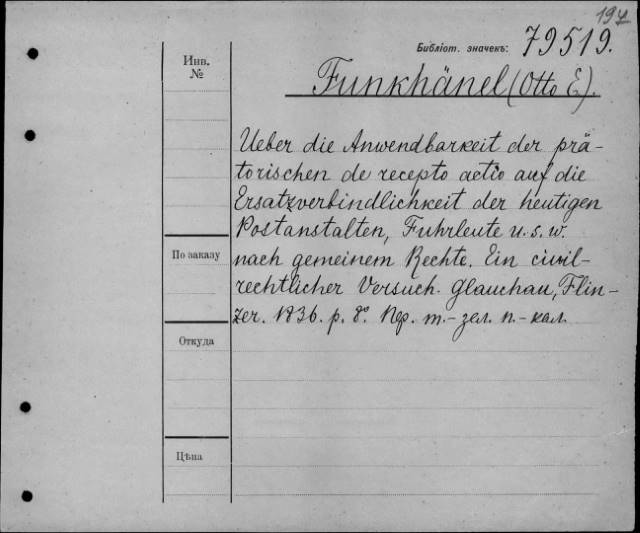 197
Библіот. значекъ: 79519.
Инв.
№
Funkhänel (Otto E).
Ueber die Anwendbarkeit der prä-
torischen de recepto actio auf die
Ersatzverbindlichkeit der heutigen
Postanstalten, Fuhrleute u. s. w.
По заказу
nach gemeinem Rechte. Ein civil-
rechtlicher Versuch. Glauchau, Flin-
zer. 1836. p. 8º. Пер. т.- зел. п.- кал.
Откуда
Цѣна